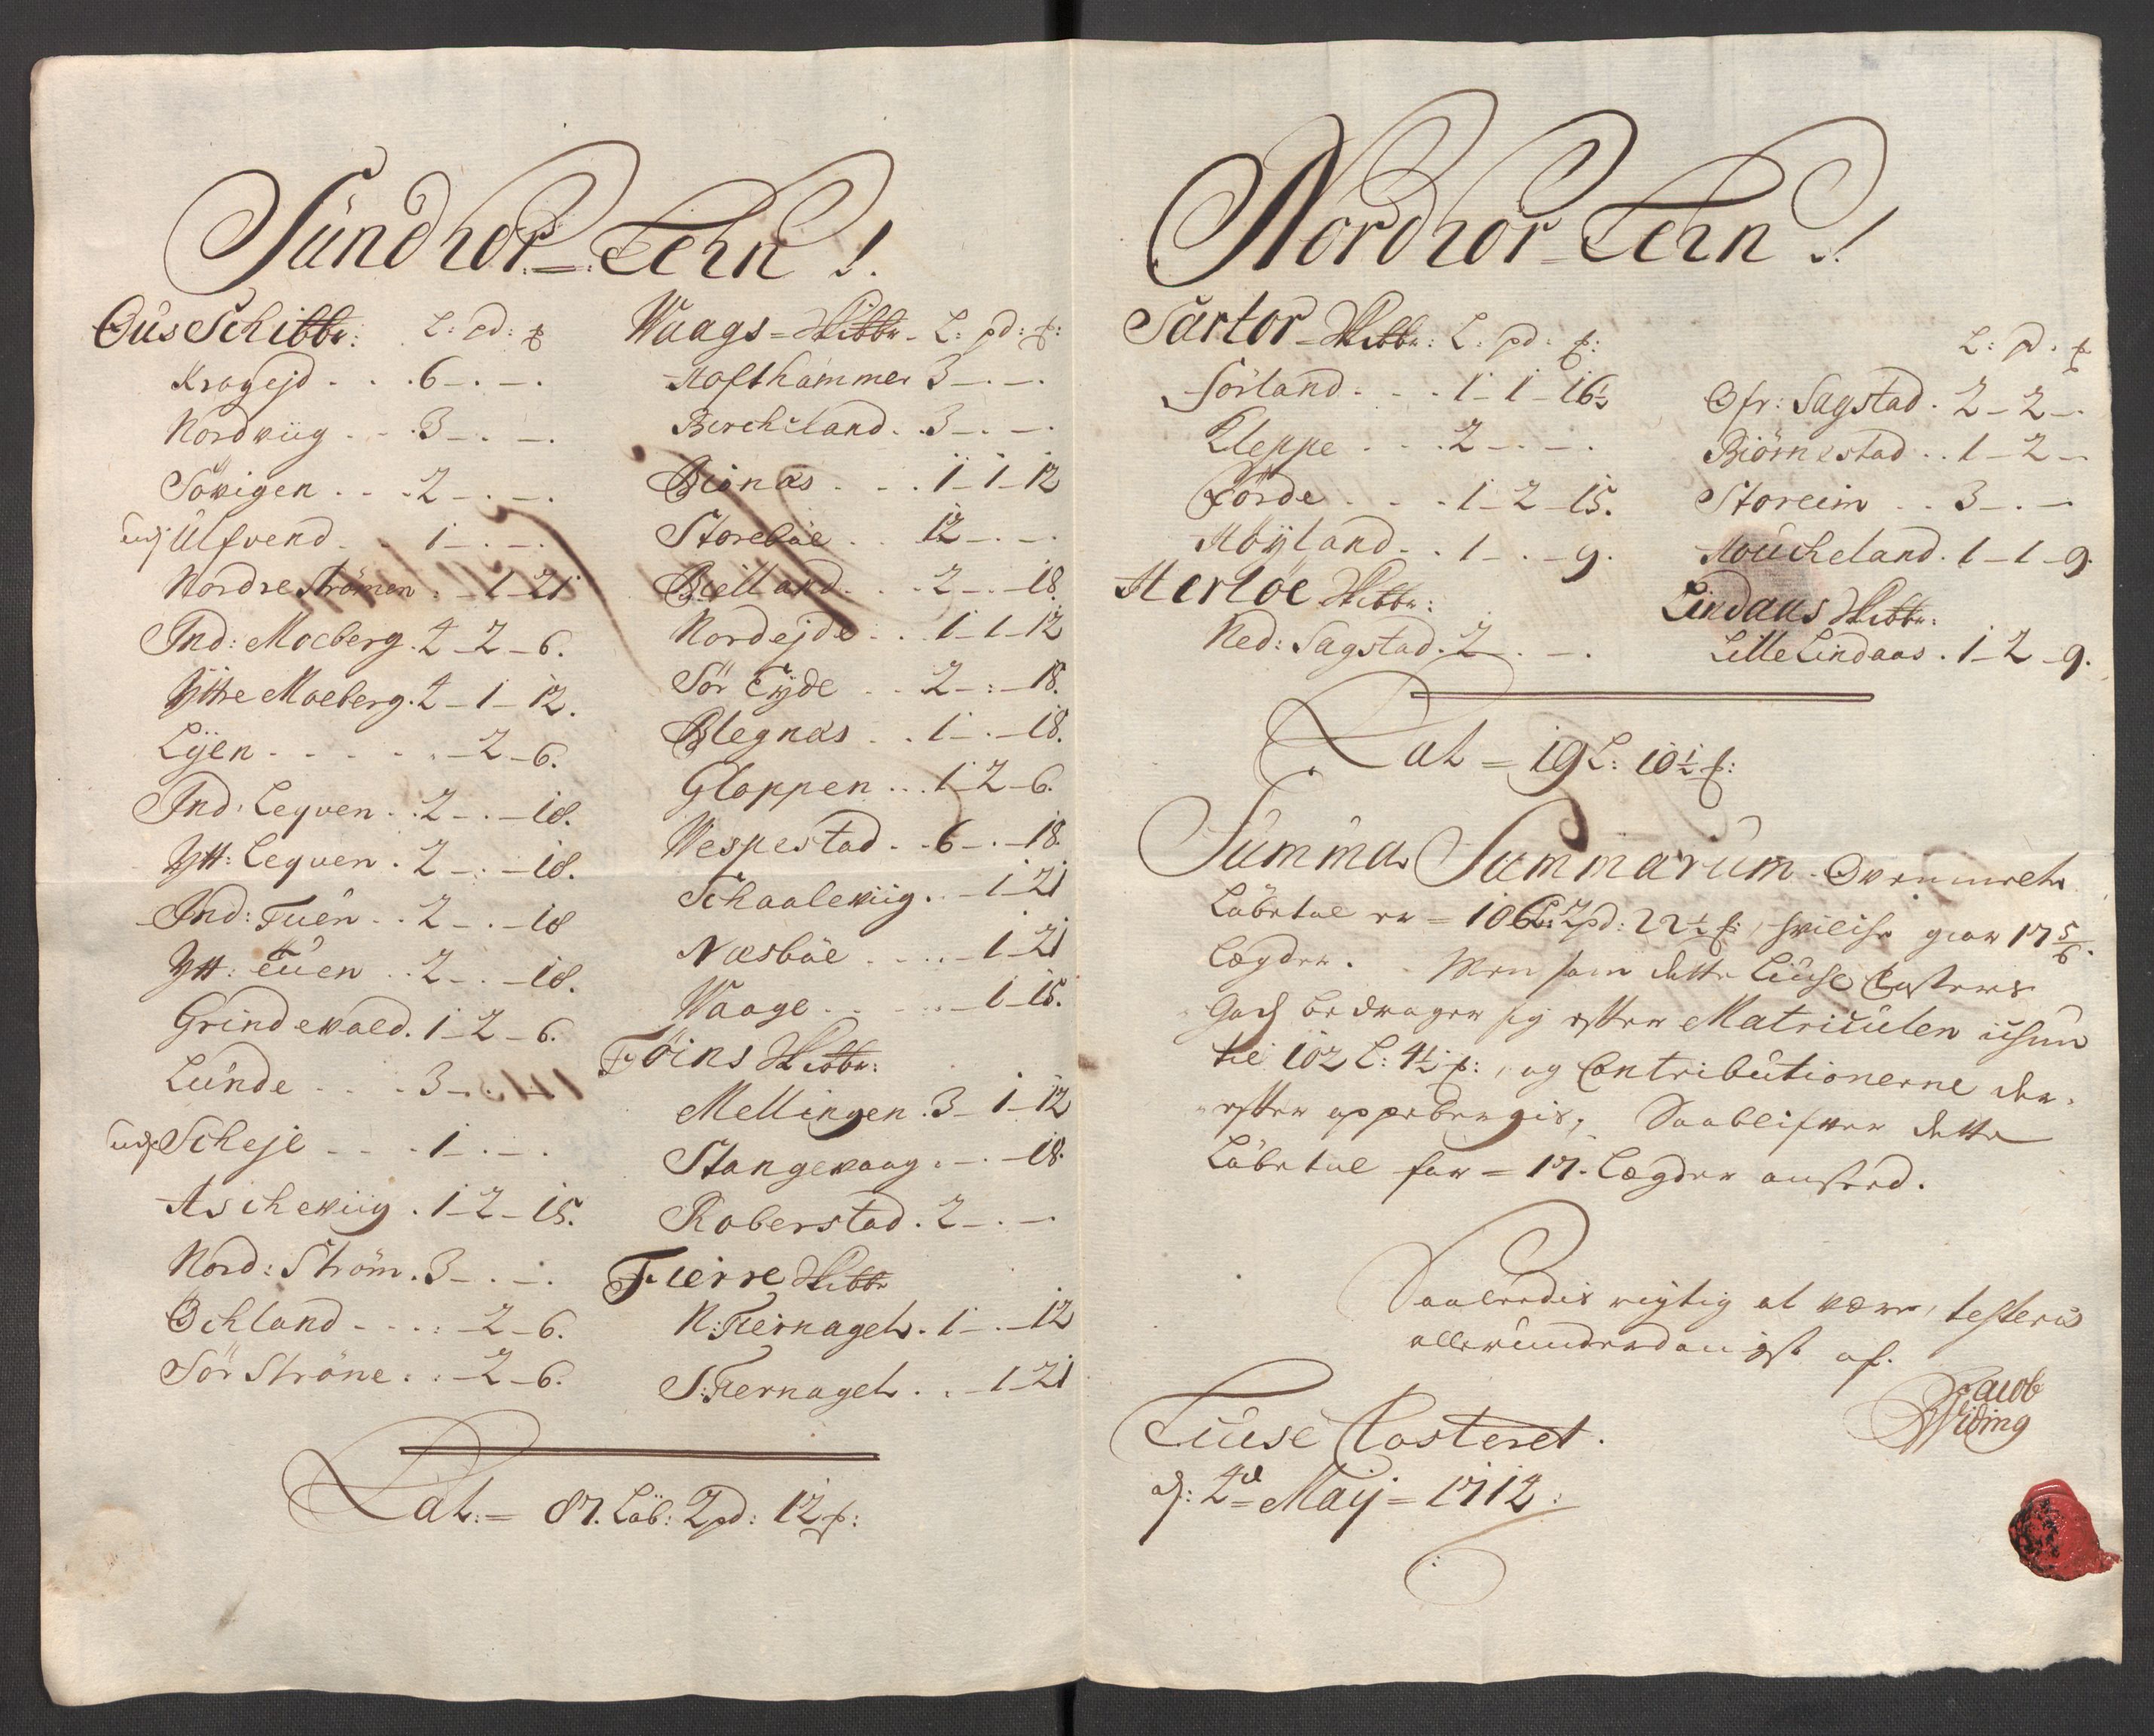 Sundhor=Lehn
Ous Schibbr: L: pd: ℔
Kragejd . . . 6 - . - .
Nordviig . . . 3 - . - .
Sövigen . . . 2 - . - .
Ulfvend . . 1 - . - .
Nordre Strömen . - 1 - 21
Ind: Moeberg . 2 - 2 - 6.
Ÿttre Moeberg . 2 - 1 - 12.
Lÿen . . . . . - 2 - 6.
Ind: Leqven . . 2 - . - 18.
Ÿtt: Leqven . 2 - . - 18.
Ind: Tuen . . 2 - . - 18
Ÿtt: Tuen . . 2 - . - 18.
Grindevald . 1 - 2 - 6.
Lunde . . . 3 - . - .
Scheje . . . 1 - . - .
Ascheviig . 1 - 2 - 15.
Nord: Ström . 3 - . - .
Öchland . . . : - 2 - 6.
Sör Ströne . : - 2 - 6.
Waags=Skibbr - L: pd: ℔:
Hofthammer 3 - . - .
Bercheland . . 3 - . - .
Biönæs . . . 1 - 1 - 12
Storeböe . . 12 - . - .
Bielland . . . 2 - . - 18.
Nordejde . . 1 - 1 - 12
Sör Eÿde . . 2 - : - 18.
Blegnæs . . 1 - . - 18.
Gloppen . . . 1 - 2 - 6.
Wespestad . . 6 - . - 18.
Schaaleviig . . - 1 - 21
Næsböe . . . . - 1 - 21
Waage . . . . - 1 - 15.
Föins Skibbr:
Mellingen . 3 - 1 - 12
Stangevaag . - . - 18.
Roberstad . 2 - . - .
Fierre Skibbr
N: Fiernagel . 1 - . - 12
S: Fiernagel . . - 1 - 21
Lat: = 87. Löb: 2 pd: 12 ℔:
Nordhor=Lehn
Sartor=Skibbr: L: pd: ℔:
Sörland . . . 1 - 1 - 16½
Kleppe . . . 2 - . - .
Förde . . . 1 - 2 - 15.
Höÿland . . 1 - . - 9.
Herlöe Skibbr:
Ned: Sagstad . 2 - . - .
L: pd. ℔
Ofr: Sagstad . 2 - 2 - .
Biörnestad . . 1 - 2 -
Storeim . . 3 - . -
Houcheland . 1 - 1 - 9.
Lindaas Skibbr:
Lille Lindaas . 1 - 2 - 9.
Lat = 19 L: 10½ ℔:
Summa Summarum Ovenmelte
Löbetal er = 106 L: 2 pd: 22½ ℔:, hvilche giør 17 5/6.
Lægder. Men som dette Liuse Closters
Gods bedrager sig efter Matriculen ichun
til 102 L: 4½ ℔:, og Contributionerne der
efter oppebergis, Saa blifver dette
Löbetal for = 17. Lægder anførd.
Saaledis rigtig at være, testeris
allerunderdanigst af.
Jacob
Widing
Liuse Closteret.
d: 2d Maij = 1712: